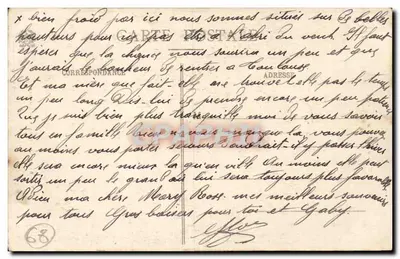 x bien froid par ici nous sommes situés sur de belles
hauteurs pour à l'abri du vent Il faut
CARTE POSTALE
espérer que la chance nous sourira un peu et que
j'aurais le bonheur de rentrer à Toulouse
CORRESPONDANCE
ADRESSE
Et ma mère que fait elle trouve t elle pas le temps
un peu long Dis-lui de prendre encore un peu patience
Que je suis bien plus tranquille moi de vous savoir
tous en famille bien que la vous pouvez
au moins vous porter secours
elle sera encore mieux la qu'en ville Au moins elle peut
sortir un peu le grand air lui sera toujours plus favorable
Adieu ma chère Mary Rose mes meilleurs souvenirs
pour tous Gros baisers pour toi et Gaby
68